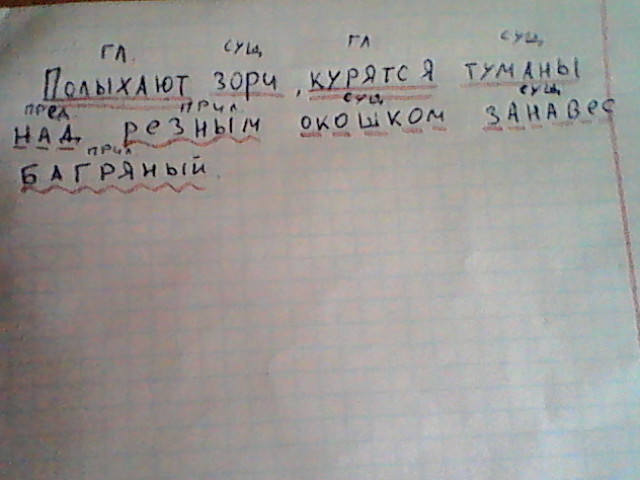 гл. сущ гл сущ
Полыхают зори, курятся туманы
пред прил. сущ сущ
над резным окошком занавес
прил
багряный.